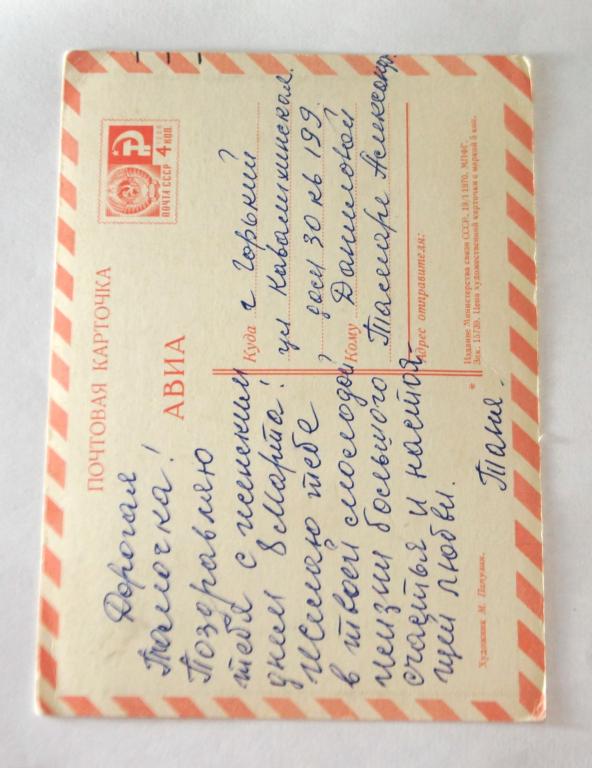 ПОЧТОВАЯ КАРТОЧКА
АВИА
ПОЧТА СССР
4 КОП.
Дорогая
Тамочка!
Поздравляю
тебя с женским
днем 8 Марта!
Желаю тебе
в твоей молодой
жизни большого
счастья и настоя-
щей любви.
Таня.
Куда г Горький
ул
дом 30 кв 199.
Кому Даниловой
Тамаре Александр.
Адрес отправителя:
Издание Министерства связи СССР. 19/I 1970. МПФГ.
Зак. 15720. Цена художественной карточки с маркой 5 коп.
Художник М. Папулин.